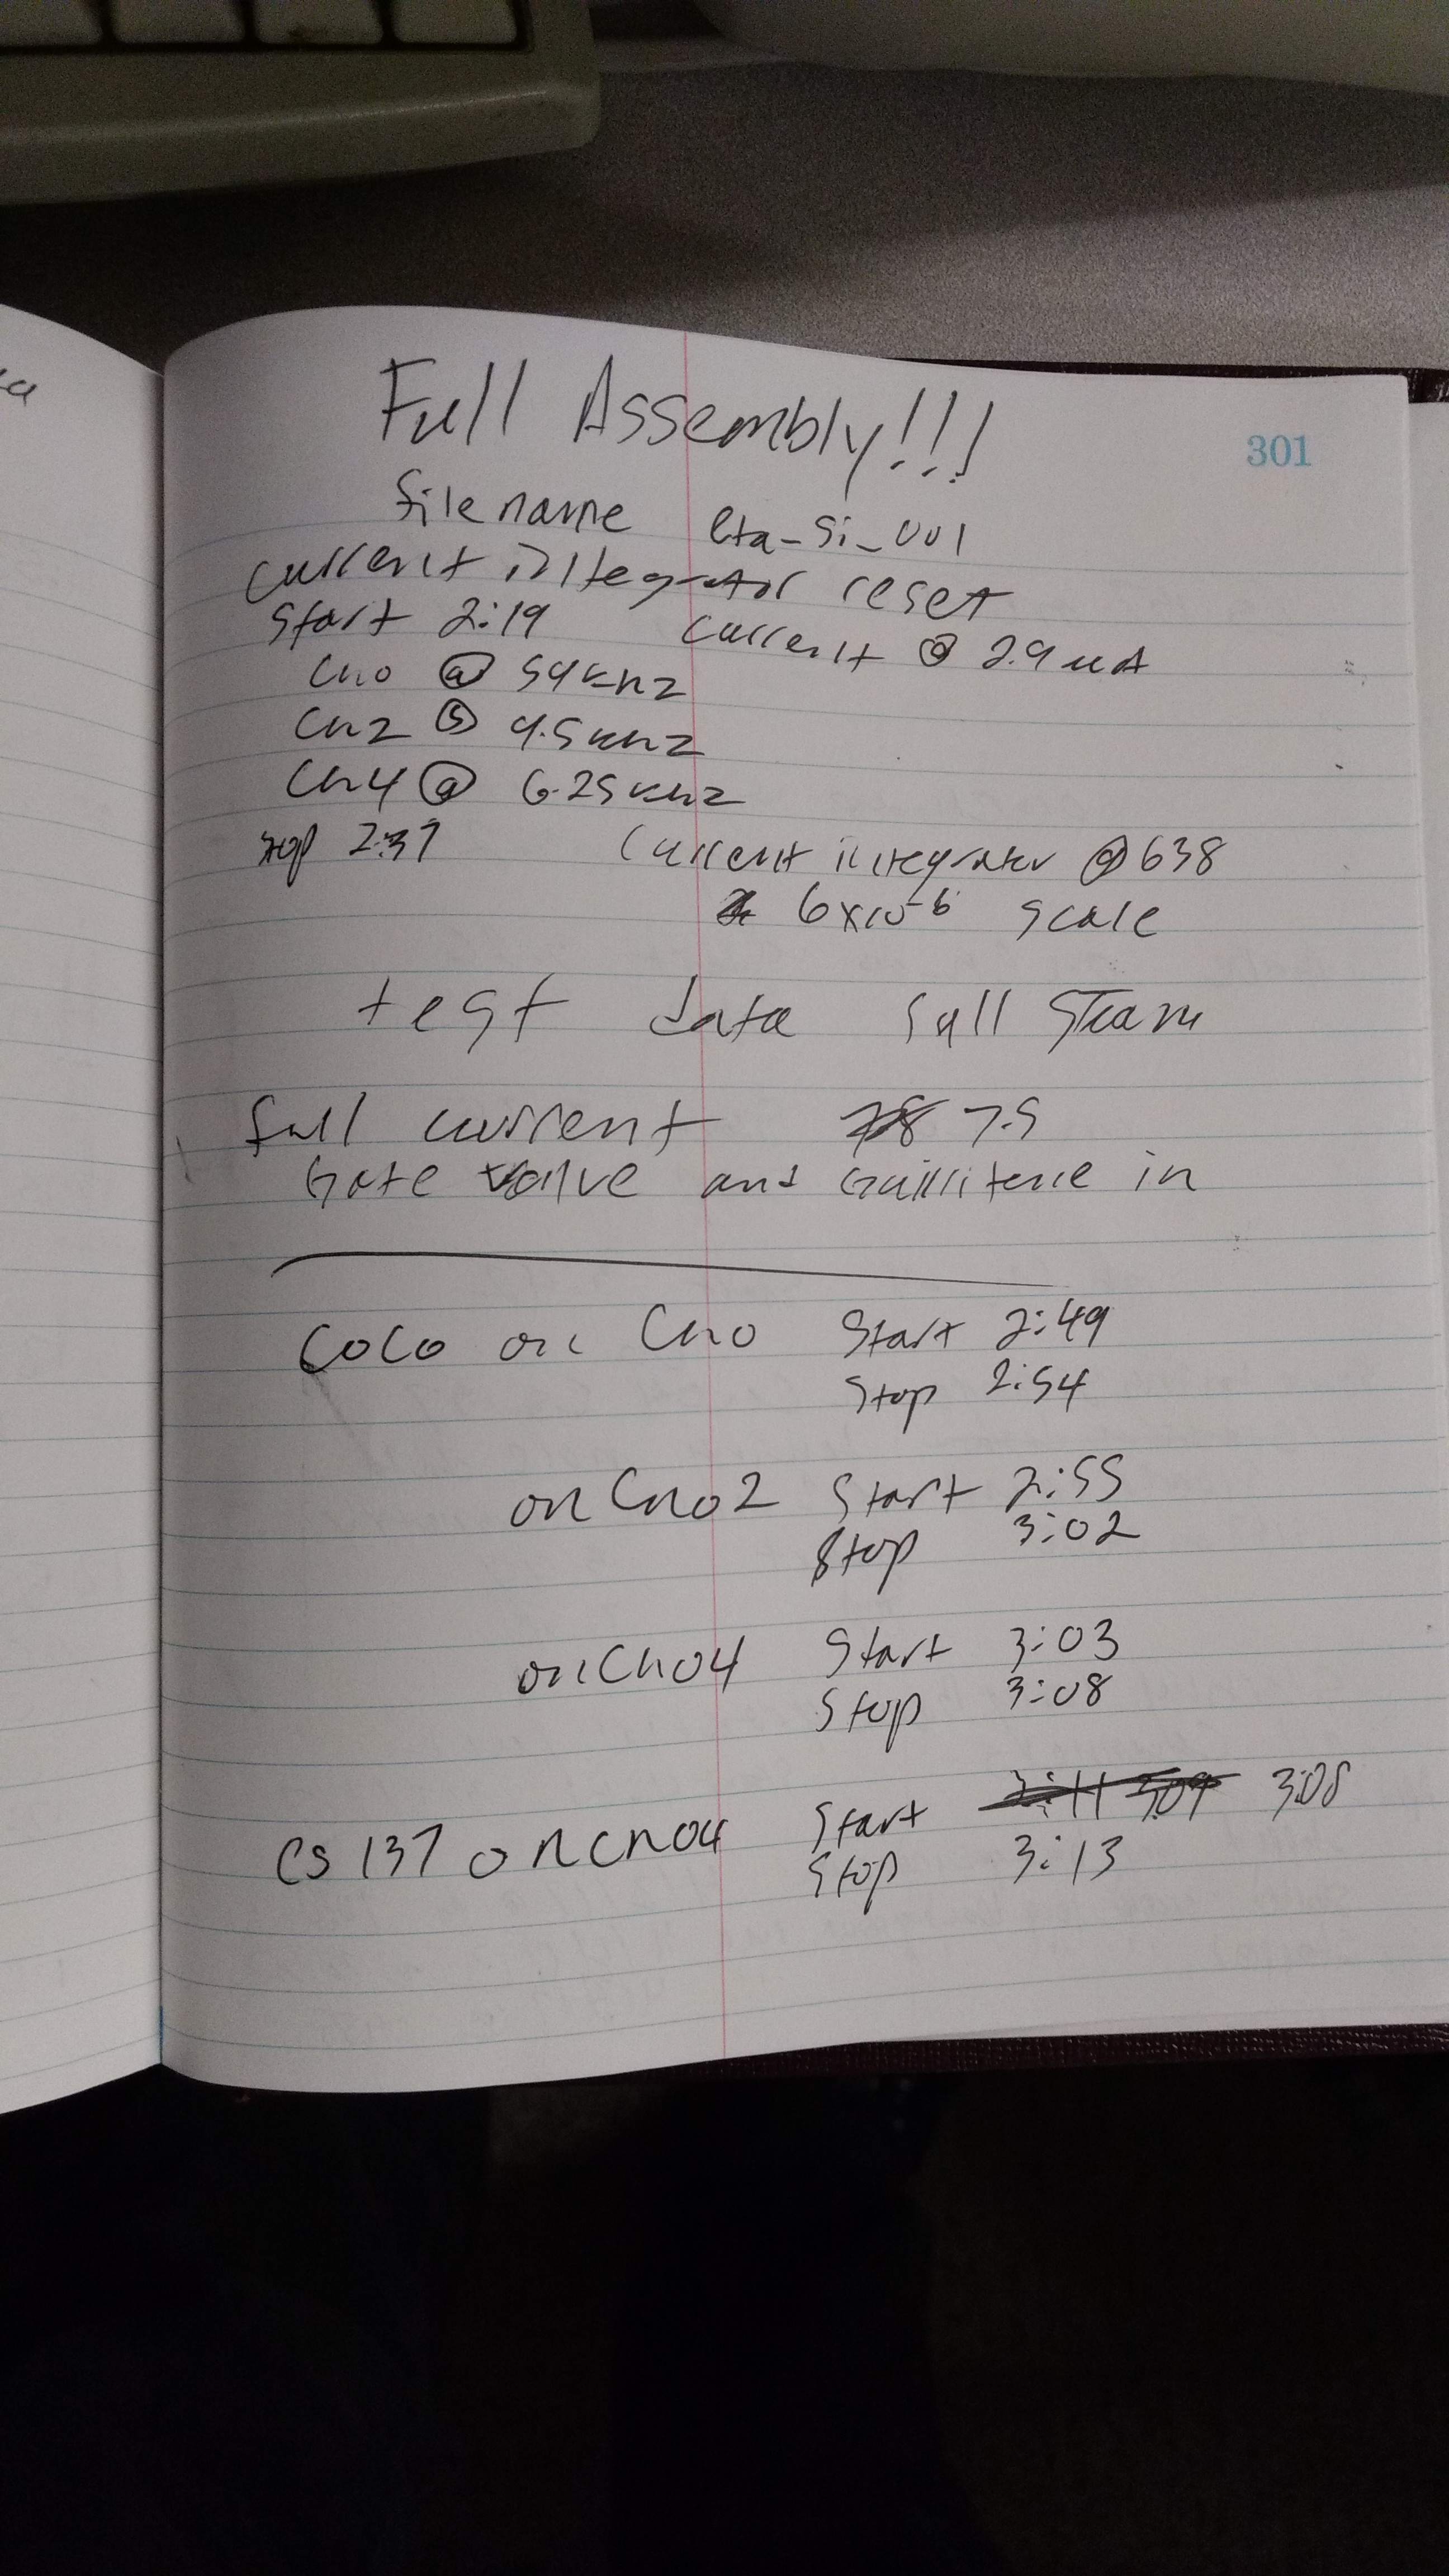 Full Assembly!!!
301
filename eta_Si_001
current integrator reset
start 2:19 current @ 2.9 uA
Ch0 @ 54kHz
Ch2 @ 9.5kHz
Ch4 @ 6.25kHz
stop 2:37 Current integrator @ 638
6x10^-6 scale
test data full steam
full current 7.5
Gate valve and in
Co60 on Ch0 Start 2:49
Stop 2:54
on Ch02 Start 2:55
Stop 3:02
on Ch04 Start 3:03
Stop 3:08
Cs 137 on Ch04 Start 3:08
Stop 3:13